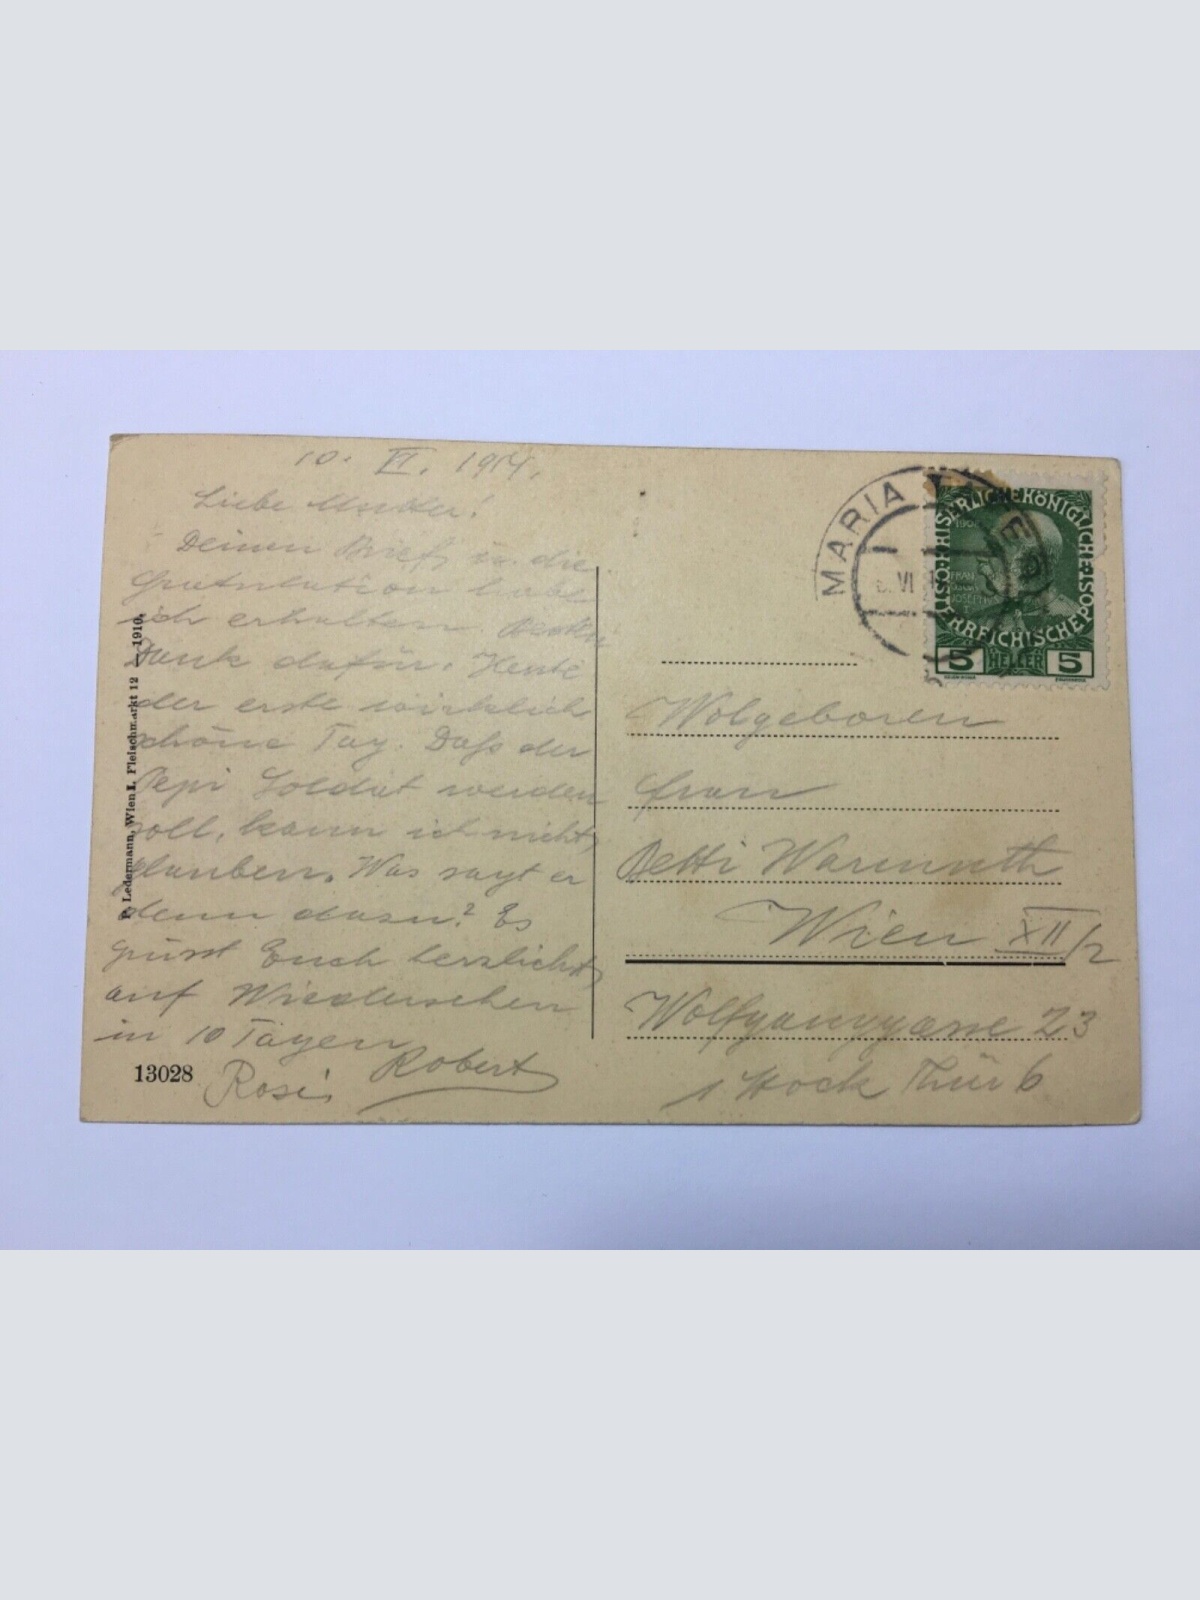 10. VI. 1914.
Liebe Mutter!
Deinen Brief u. die
Gratulation habe
ich erhalten. Besten
Dank dafür. Heute
der erste wirklich
schöne Tag. Daß der
Pepi Soldat werden
soll, kann ich nicht
glauben. Was sagt er
denn dazu? Es
grüsst Euch herzlichst,
auf Wiedersehen
in 10 Tagen
Robert
Rosi
P. Ledermann, Wien I, Fleischmarkt 12 — 1910.
13028
MARIA
VI
KAISERLICHE KÖNIGLICHE ÖSTERREICHISCHE POST
1908
FRANZ
JOSEPH I
5 HELLER 5
Wolgeboren
Frau
Betti Warmuth
Wien XII/2
Wolfganggasse 23
1 Stock Thür 6